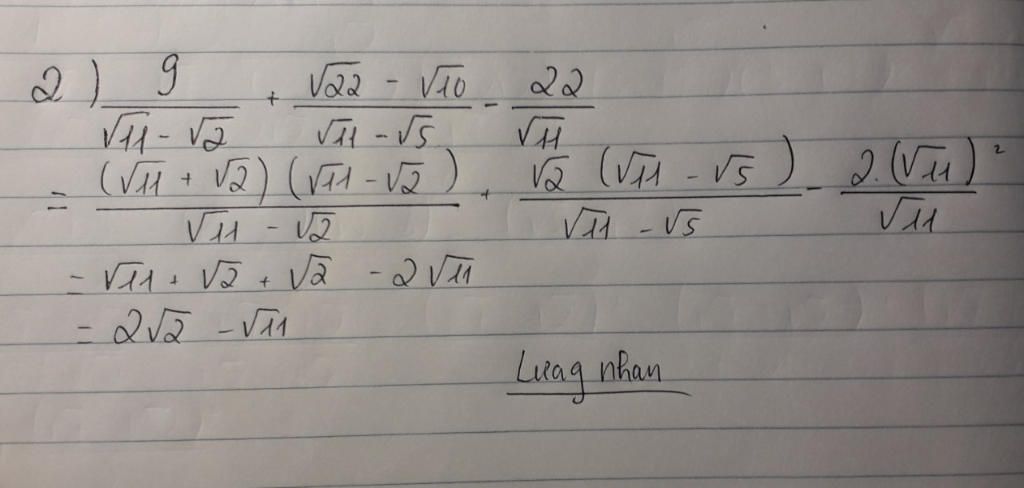 2) 9/(√11 - √2) + (√22 - √10)/(√11 - √5) - 22/√11
= (√11 + √2)(√11 - √2)/(√11 - √2) + √2 (√11 - √5)/(√11 - √5) - 2.(√11)²/√11
= √11 + √2 + √2 - 2√11
= 2√2 - √11